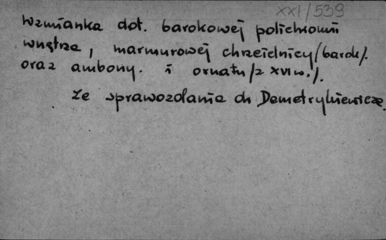 XXI/539
Wzmianka dot. barokowej polichromii
wnętrza, marmurowej chrzcielnicy /barok/.
oraz ambony. i ornatu /z XVI w./.
Ze sprawozdania dr Demetrykiewicza